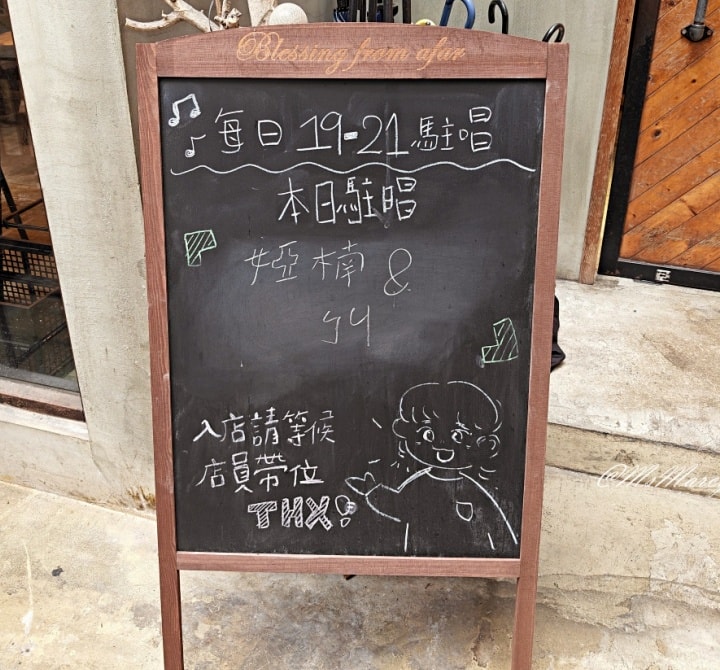 Blessing from afar
每日 19-21 駐唱
本日駐唱
婭楠 &
입구
入店請等候
店員帶位
THX!